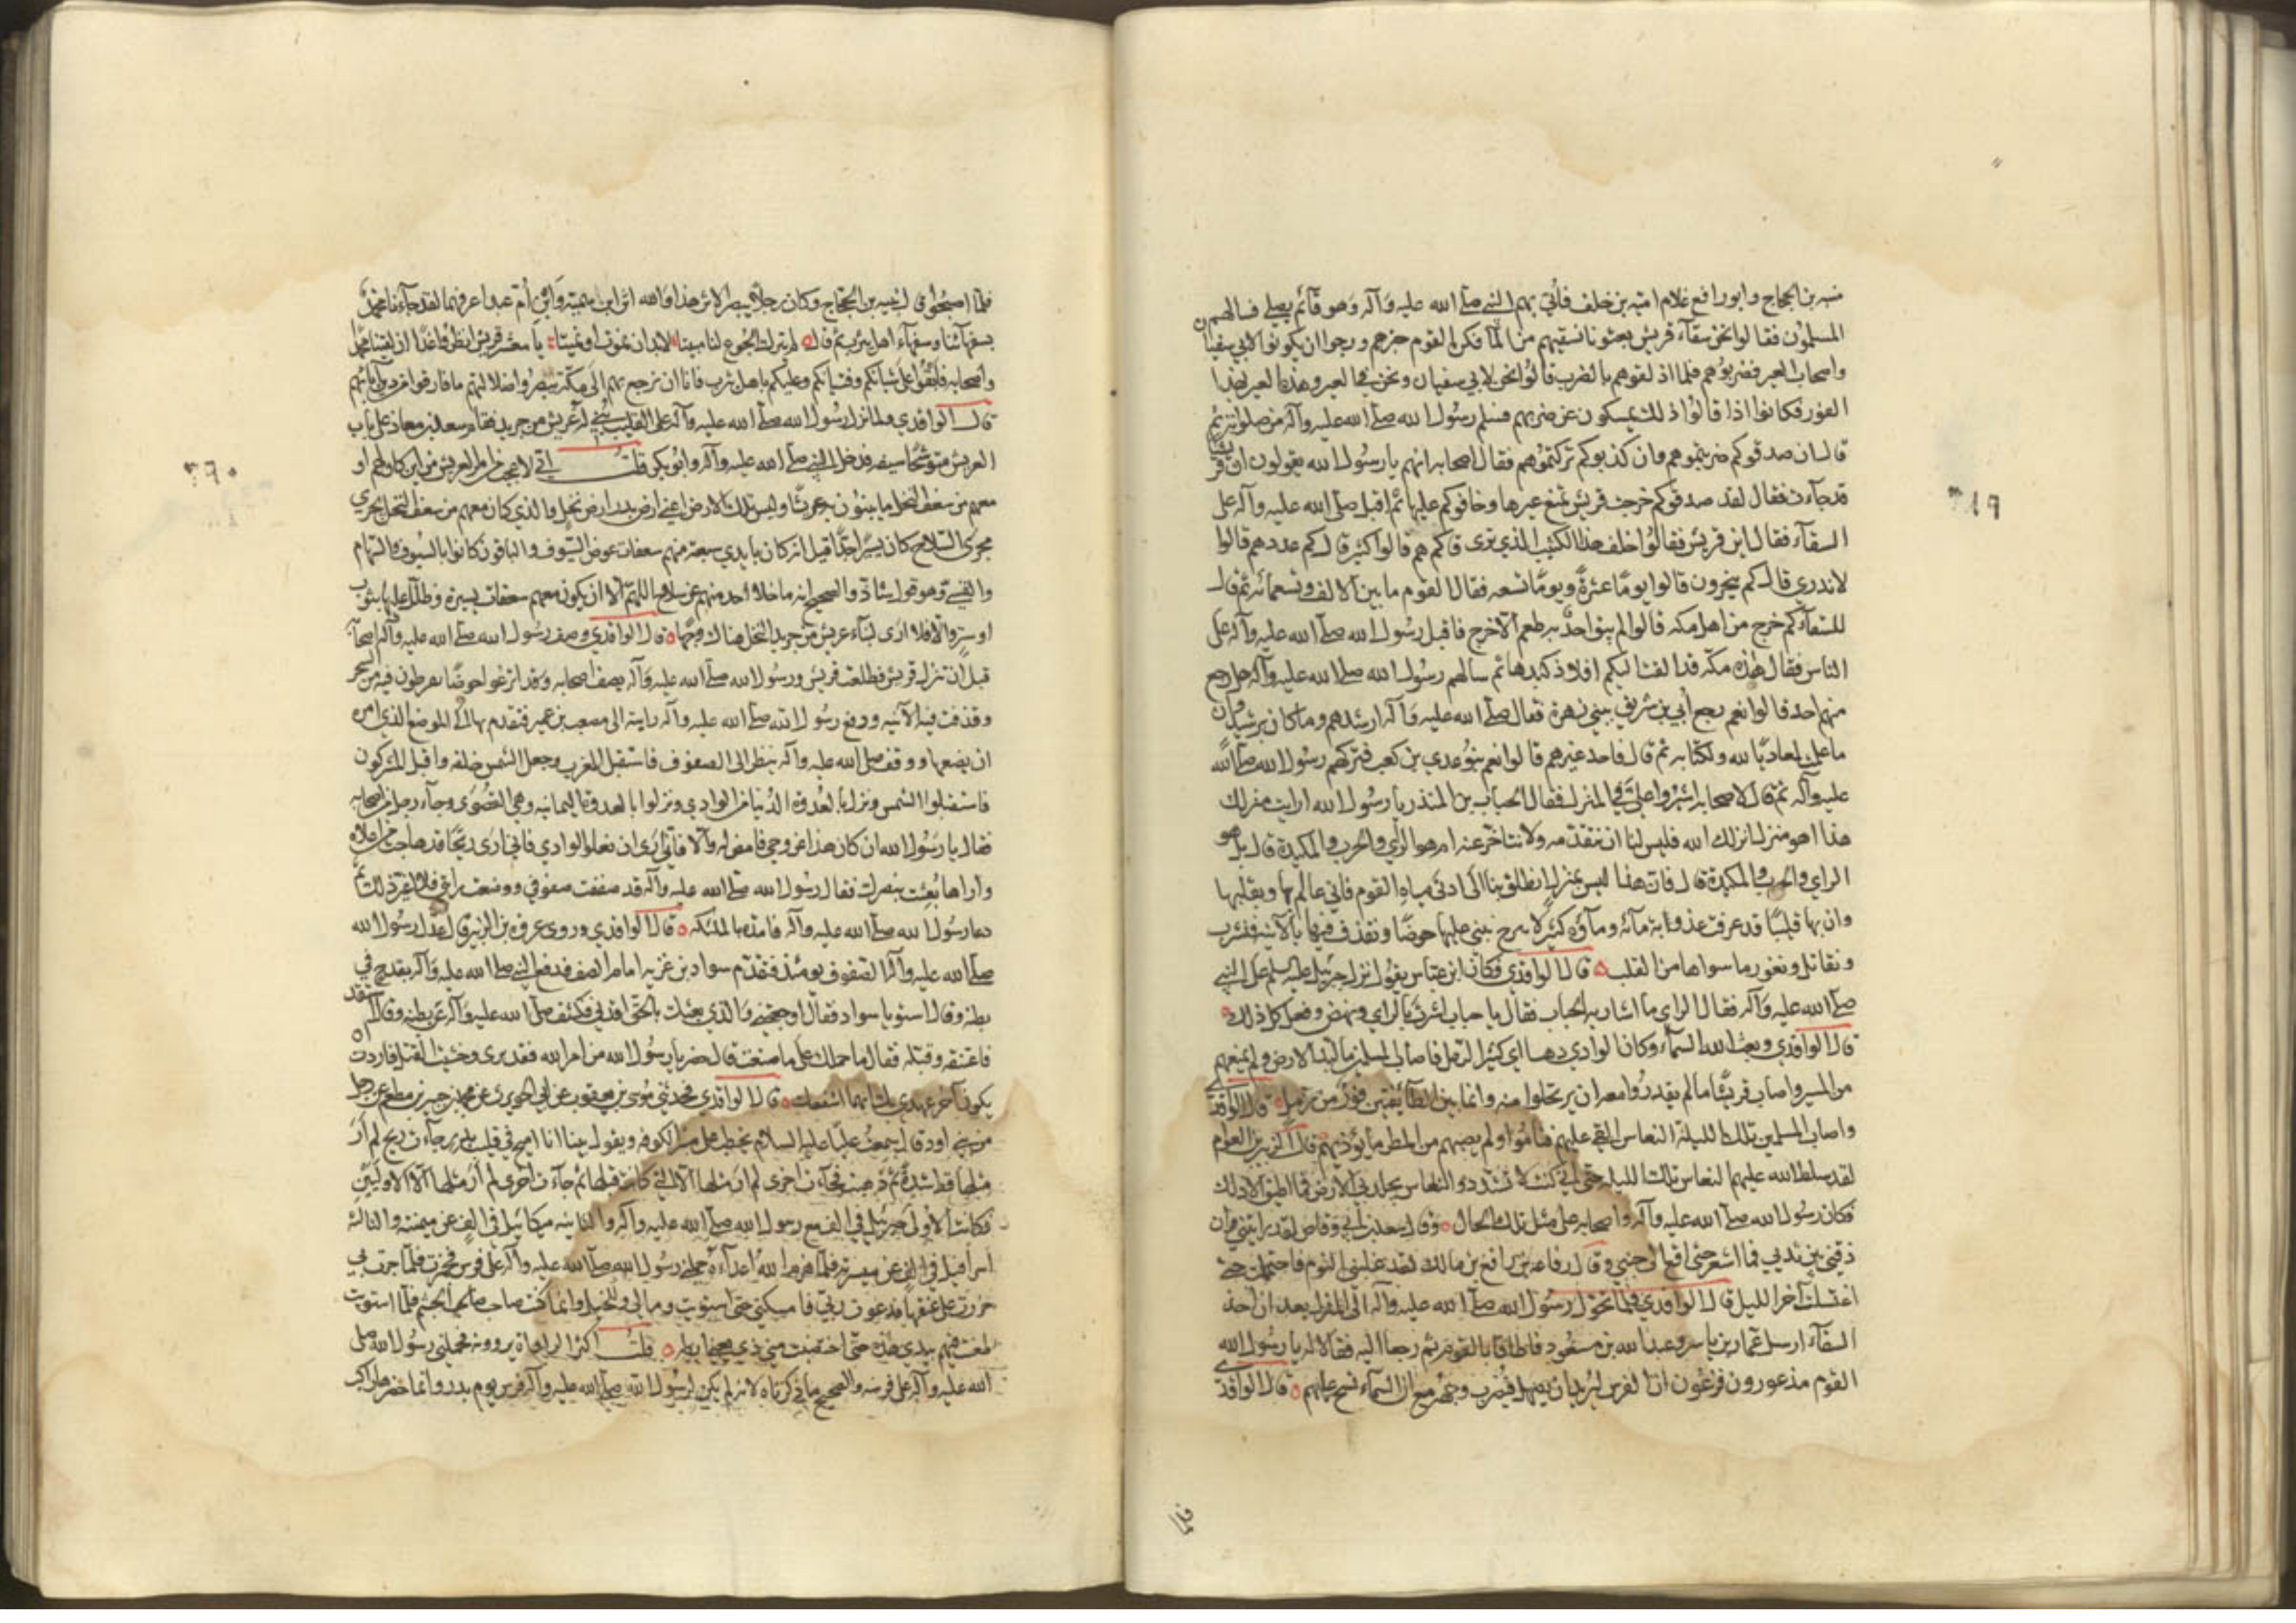 منبه بن الحجاج وابو رافع غلام امية بن خلف فأتي بهم النبي صلى الله عليه وآله وهو قائم يصلي فسالهم
المسلمون فقالوا نحن سقاء قريش بعثونا نسقيهم من الماء فكره القوم خبرهم ورجوا ان يكونوا لابي سفيان
واصحاب العير فضربوهم فلما اذلقوهم بالضرب قالوا نحن لابي سفيان ونحن في العير وهذا العير بهذا
القوز فكانوا اذا قالوا ذلك يمسكون عن ضربهم فسلم رسول الله صلى الله عليه وآله من صلوته ثم
قال ان صدقوكم ضربتموهم وان كذبوكم تركتموهم فقال اصحابه انهم يا رسول الله يقولون ان قريشا
قد جآءت فقال لقد صدقوكم خرجت قريش تمنع عيرها وخافوكم عليها ثم اقبل صلى الله عليه وآله على
السقآء فقال اين قريش فقالوا خلف هذا الكثيب الذي ترى قال كم هم قالوا كثير قال كم عددهم قالوا
لا ندري قال كم ينحرون قالوا يوما عشرة ويوما تسعه فقال القوم ما بين الالف وتسعمائه ثم قال
للسقآء كم خرج من اهل مكه قالوا لم يبق احد به طعم الا خرج فاقبل رسول الله صلى الله عليه وآله على
الناس فقال هذه مكة قد القت اليكم افلاذ كبدها ثم سالهم رسول الله صلى الله عليه وآله هل رجع
منهم احد قالوا نعم رجع أبي بن شريق ببني زهرة فقال صلى الله عليه وآله ارشدهم وما كان برشيد وان
ما علمت لمعاديا لله ولكتابه ثم قال فاحد غيرهم قالوا نعم بنو عدي بن كعب فتركهم رسول الله صلى الله
عليه وآله ثم قال لاصحابه اشيروا علي في المنزل فقال الحباب بن المنذر يا رسول الله ارايت منزلك
هذا اهو منزل انزلك الله فليس لنا ان نتقدمه ولا نتاخر عنه ام هو الراي والحرب والمكيدة قال بل هو
الراي والحرب والمكيدة قال فان هذا ليس بمنزل انطلق بنا الى ادنى مياه القوم فاني عالم بها وبقلبها
وان بها قليبا قد عرفت عذوبة مآئه ومآؤه كثير لا ينزح نبني عليها حوضا ونقذف فيها بالآنية فنشرب
ونقاتل ونغور ما سواها من القلب قال الواقدي فكان ابن عباس يقول نزل جبرئيل عليه السلم على النبي
صلى الله عليه وآله فقال الراي ما اشار به الحباب فقال يا حباب اشرت بالراي ونهض وفعل كل ذلك
قال الواقدي وبعث الله السمآء وكان الوادي دهسا اي كثير الرمل فاصاب المسلمين ما لبد الارض ولم يمنعهم
من المسير واصاب قريشا ما لم يقدروا معه ان يرتحلوا منه وانما بين الطائفتين قوز من رمل قال الواقدي
واصاب المسلمين تلك الليلة النعاس القي عليهم فناموا ولم يصبهم من المطر ما يؤذيهم قال الزبير بن العوام
لقد سلط الله عليهم النعاس تلك الليلة حتى اني كنت لا تشدد والنعاس يجلد بي الارض فما اطيق الا ذلك
فكان رسول الله صلى الله عليه وآله واصحابه على مثل تلك الحال وقال سعد بن أبي وقاص لقد رايتني وان
ذقني بين ثديي فما اشعر حتى اقع على جنبي وقال رفاعه بن رافع بن مالك لقد غلبني النوم فاحتلمت حتى
اغتسلت آخر الليل قال الواقدي فلما تحول رسول الله صلى الله عليه وآله الى المنزل بعد ان اخذ
السقآء ارسل عمار بن ياسر وعبد الله بن مسعود فاطافا بالقوم ثم رجعا اليه فقالا له يا رسول الله
القوم مذعورون فزعون ان الفرس ليريد ان يصهل فيضرب وجهه مع ان السمآء تسح عليهم قال الواقدي
فلما
١٩
فلما اصبحوا قال نبيه بن الحجاج وكان رجلا يبصر الاثر هذا والله اثر ابن سمية وابن أم عبد اعرفهما لقد جآءنا محمد
بسفهآئنا وسفهآء اهل يثرب ثم قال لم يترك الجوع لنا مبيتا لا بد ان نموت او نميتا يا معشر قريش انظروا غدا ان لقينا محمدا
واصحابه فابقوا على شبانكم وفتيانكم وعليكم باهل يثرب فانا ان نرجع بهم الى مكة يبصروا ضلالتهم ما فارقوا من دين آبائهم
قال الواقدي ولما نزل رسول الله صلى الله عليه وآله على القليب بني له عريش من جريد فقام سعد بن معاذ على باب
العريش متوشحا سيفه فدخل النبي صلى الله عليه وآله وابو بكر قلت اني لاعجب من امر العريش من اين كان لهم او
معهم من سعف النخل ما يبنون به عريشا وليس تلك الارض اعني ارض بدر ارض نخل والذي كان معهم من سعف النخل يجري
مجرى السلاح كان يسيرا جدا قيل انه كان بايدي سبعة منهم سعفات عوض السيوف والباقون كانوا بالسيوف والسهام
والقسي وهو قول شاذ والصحيح انه ما خلا احد منهم عن سلاح اللهم الا ان يكون معهم سعفات يسيرة وظلل عليها بثوب
او ستر والا فلا ارى لبناء عريش من جريد النخل هناك وجها قال الواقدي وصف رسول الله صلى الله عليه وآله اصحابه
قبل ان تنزل قريش فطلعت قريش ورسول الله صلى الله عليه وآله يصف اصحابه وقد اترعوا حوضا يفرطون فيه من السحر
وقذفت فيه الآنيه ودفع رسول الله صلى الله عليه وآله رايته الى مصعب بن عمير فتقدم بها الى الموضع الذي امره
ان يضعها ووقف صلى الله عليه وآله ينظر الى الصفوف فاستقبل المغرب وجعل الشمس خلفه واقبل المشركون
فاستقبلوا الشمس ونزل بالعدوة الدنيا من الوادي ونزلوا بالعدوة اليمانيه وهي القصوى وجآء رجل من اصحابه
فقال يا رسول الله ان كان هذا عن وحي فامض له والا فاني ارى ان تعلو الوادي فاني ارى ريحا قد هاجت من اعلاه
واراها بعثت بنصرك فقال رسول الله صلى الله عليه وآله قد صففت صفوفي ووضعت رايتي فلا اغير ذلك ثم
دعا رسول الله صلى الله عليه وآله فامده بالملئكه قال الواقدي وروى عروة بن الزبير قال عدل رسول الله
صلى الله عليه وآله الصفوف يومئذ فتقدم سواد بن غزيه امام الصف فدفع النبي صلى الله عليه وآله بقدح في
بطنه وقال استو يا سواد فقال اوجعتني والذي بعثك بالحق اقدني فكشف صلى الله عليه وآله عن بطنه وقال استقد
فاعتنقه وقبله فقال ما حملك على ما صنعت قال حضر يا رسول الله من امر الله فقد ترى وخشيت القتل فاردت ان
يكون آخر عهدي بك قال الواقدي فحدثني موسى بن يعقوب عن ابي الحويرث عن محمد بن جبير بن مطعم عن رجل
من بني اود قال سمعت عليا عليه السلام يخطب على منبر الكوفه ويقول بينا انا اميح في قليب بدر جآءت ريح لم أر
مثلها قط شدة ثم ذهبت فجآءت اخرى لم ار مثلها الا التي كانت قبلها ثم جآءت اخرى لم أر مثلها الا الاوليين
فكانت الاولى جبرئيل في الف مع رسول الله صلى الله عليه وآله والثانيه ميكائيل في الف عن ميمنته والثالثه
اسرافيل في الف عن ميسرته فلما هزم الله اعدآءه حملني رسول الله صلى الله عليه وآله على فرس فجرت فلما جرت بي
خررت على عنقها فدعوت ربي فامسكني حتى استويت وما لي وللخيل وانما كنت صاحب الحشم فلما استويت
طعنت فيهم بيدي هذه حتى اختضبت مني ذي يعني ابطه قلت اكثر الرواة يروونه فحملني رسول الله صلى
الله عليه وآله على فرسه والصحيح ما ذكرناه لانه لم يكن لرسول الله صلى الله عليه وآله فرس يوم بدر وانما حضرها راكب